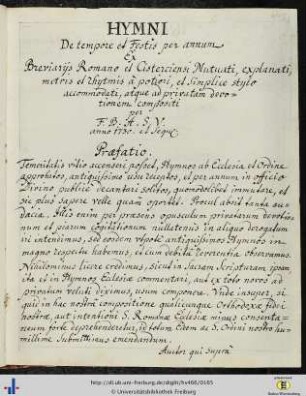 HYMNI
De tempore et Festis per annum
Ex
Breviarijs Romano et Cisterciensi Mutuati, explanati,
metris et rhytmis à potiori, et simplice stylo
accommodati, atque ad privatam devo-
tionem compositi
per
F. B. A. S. V.
anno 1730. et seqq.
Præfatio.
Temeritatis vitio accenseri posset, Hymnos ab Ecclesia et Ordine
approbatos, antiquissimo usu receptos, et per annum in officio
Divino publicè decantari solitos, quomodolibet immutare, et
sic plus sapere velle quàm oportet. Procul absit tanta au-
dacia. Aliis enim per præsens opusculum privatarum devotio-
num et piarum cogitationum nullatenus in aliquo derogatum
iri intendimus, sed eosdem utpote antiquissimos Hymnos in
magno respectu habemus, et cum debita reverentia observamus.
Nihilominus licere credimus sicut in Sacram Scripturam ipsam
ita et in Hymnos Ecclesiæ commentari, aut ex toto novos ad
privatum veluti diximus, usum componere. Unde insuper, si
quid in hac nostra compositione qualicunque Orthodoxæ fidei
nostræ, aut intentioni S. Romanæ Ecclesiæ minus consenta-
neum forte deprehenderetur, id totum Eidem ac S. Ordini nostro hu-
millime submittimus emendandum.
Auctor qui suprà
http://dl.ub.uni-freiburg.de/diglit/hs466/0005
© Universitätsbibliothek Freiburg